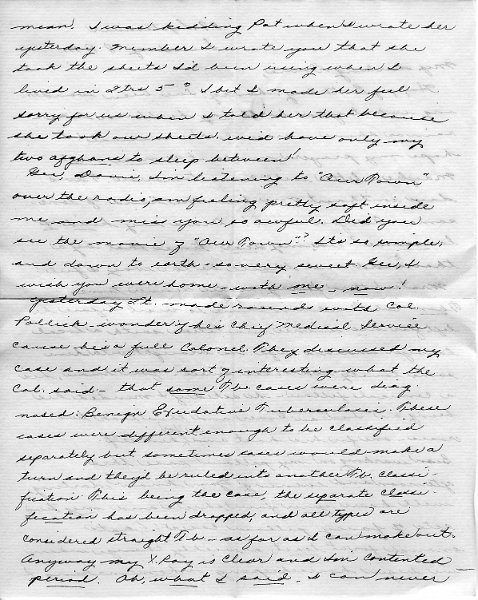 mean. I was kidding Pat when I wrote her
yesterday. Member I wrote you that she
took the sheets I'd been using when I
lived in Qtrs 5? I bet I made her feel
sorry for us when I told her that because
she took our sheets we'd have only my
two afghans to sleep between!
Gee, Davie, I'm listening to "Our Town"
over the radio, am feeling pretty soft inside
me and miss you so awful. Did you
see the movie of "Our Town"? Its so simple,
and down to earth - so very sweet. Gee, I
wish you were home - with me - now!
Yesterday Lt. made rounds with Col.
Pollick - wonder if he's Chief Medical Service
cause he's a full Colonel. They discussed my
case and it was sort of interesting what the
Col. said - that some Tb cases were diag
nosed: Benign Exudative Tuberculosis. These
cases were different enough to be classified
separately but sometimes cases would make a
turn and they'd be ruled into another Tb. classi-
fication. This being the case, the separate classi-
fication has been dropped, and all types are
considered straight Tb - as far as I can make out.
Anyway my X Ray is clear and I'm contented -
period. Oh, what I said - I can never